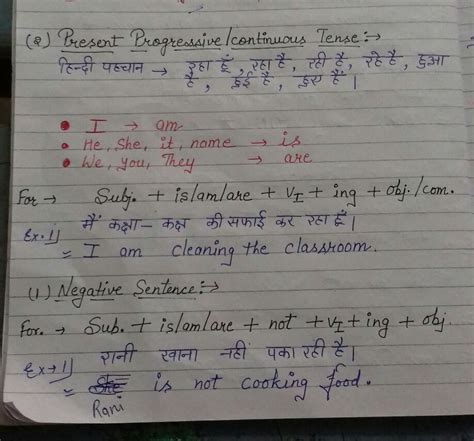 (2) Present Progressive/continuous Tense:→
हिन्दी पहचान → रहा हूँ, रहा है, रही है, रहे है, हुआ
है, हुई है, हुए हैं।
• I → am
• He, She, it, name → is
• We, you, They → are
For → Subj. + is/am/are + V1 + ing + obj./com.
मैं कक्षा-कक्ष की सफाई कर रहा हूँ।
Ex.1]
= I am cleaning the classroom.
(1) Negative Sentence:→
For. → Sub. + is/am/are + not + V1 + ing + obj.
रानी खाना नहीं पका रही है।
Ex→1]
= is not cooking food.
Rani